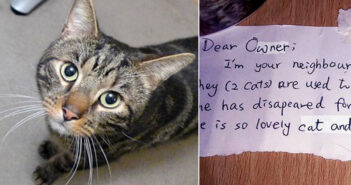 Dear Owner:
I'm your neighbour
hey (2 cats) are used to
e has disapeared for
e is so lovely cat and